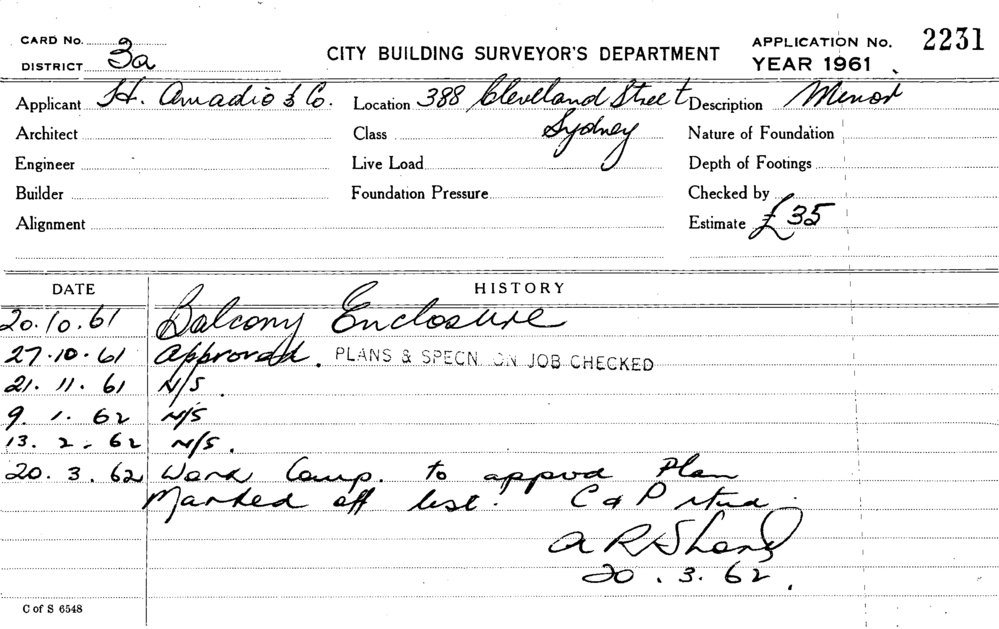 CARD No.
DISTRICT 3a
CITY BUILDING SURVEYOR'S DEPARTMENT
APPLICATION No. 2231
YEAR 1961
Applicant H. Amadio & Co. Location 388 Cleveland Street Description Minor
Architect Class Sydney Nature of Foundation
Engineer Live Load Depth of Footings
Builder Foundation Pressure Checked by
Alignment Estimate £35
DATE HISTORY
20.10.61 Balcony Enclosure
27.10.61 Approved. PLANS & SPECN. ON JOB CHECKED
21.11.61 N/S.
9.1.62 N/S
13.2.62 N/S.
20.3.62 Work Comp. to appvd Plan
Marked off list. C & P rtnd
20.3.62.
C of S 6548